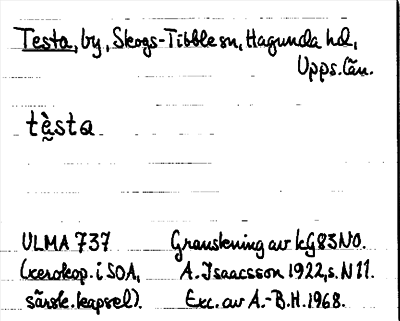 Testa, by, Skogs-Tibble sn, Hagunda hd,
Upps. län.
tè̬sta
ULMA 737 Granskning av kG83NO.
(xerokop. i SOA, A. Isaacsson 1922, s. N 11.
särsk. kapsel). Exc. av A.-B.H. 1968.